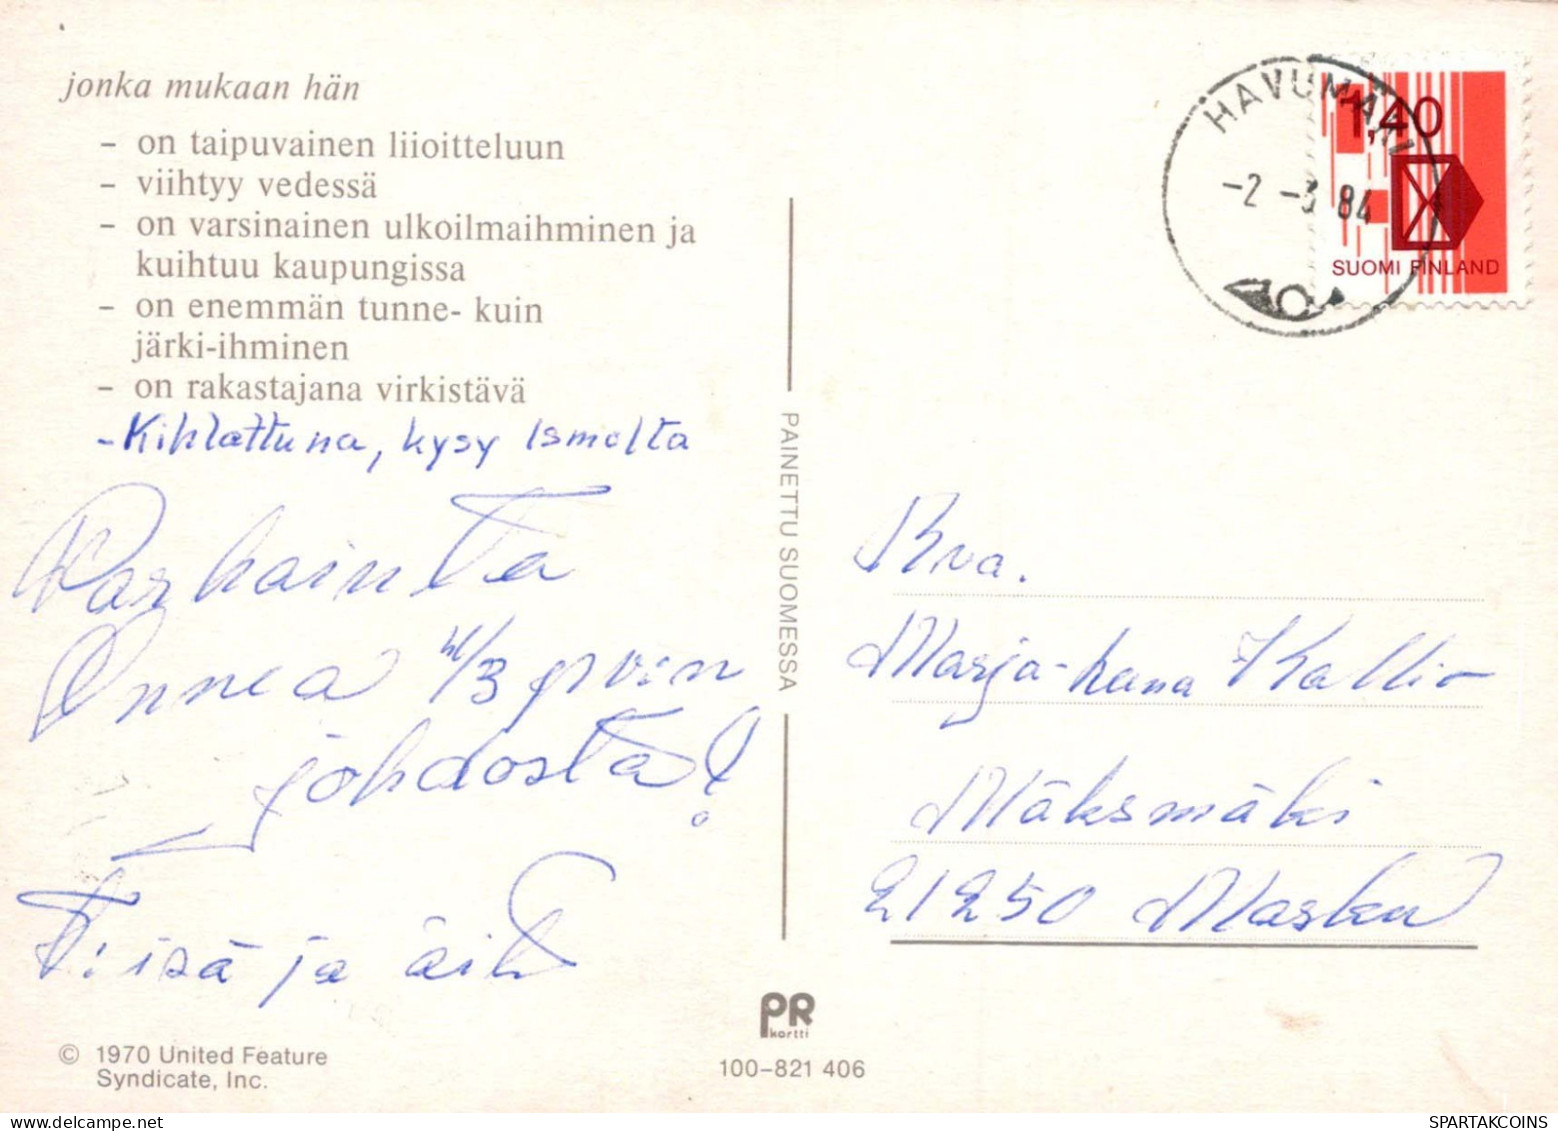 jonka mukaan hän
– on taipuvainen liioitteluun
– viihtyy vedessä
– on varsinainen ulkoilmaihminen ja
kuihtuu kaupungissa
– on enemmän tunne- kuin
järki-ihminen
– on rakastajana virkistävä
- Kihlattuna, kysy Ismolta
Parhainta
Onnea /3 p:vän
johdosta!
T: isä ja äiti
© 1970 United Feature
Syndicate, Inc.
PAINETTU SUOMESSA
PR
kortti
100-821 406
HAVUMÄKI
-2 -3 84
1,40
SUOMI FINLAND
Rva.
Marja-Leena Kallio
Mäksmäki
21250 Masku
SPARTAKCOINS